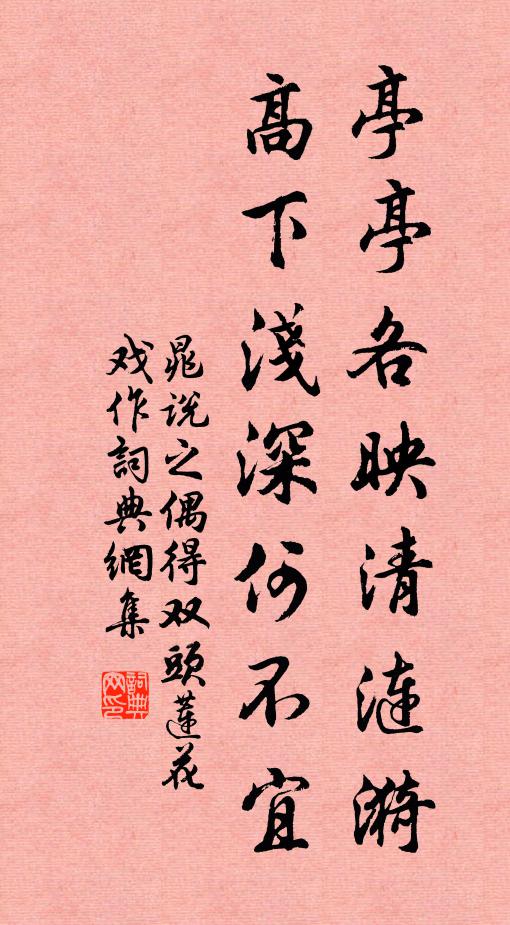 亭亭各映清漣漪
高下淺深何不宜
晁说之偶得双頭蓮花
戏作詞典網集
詞典網印